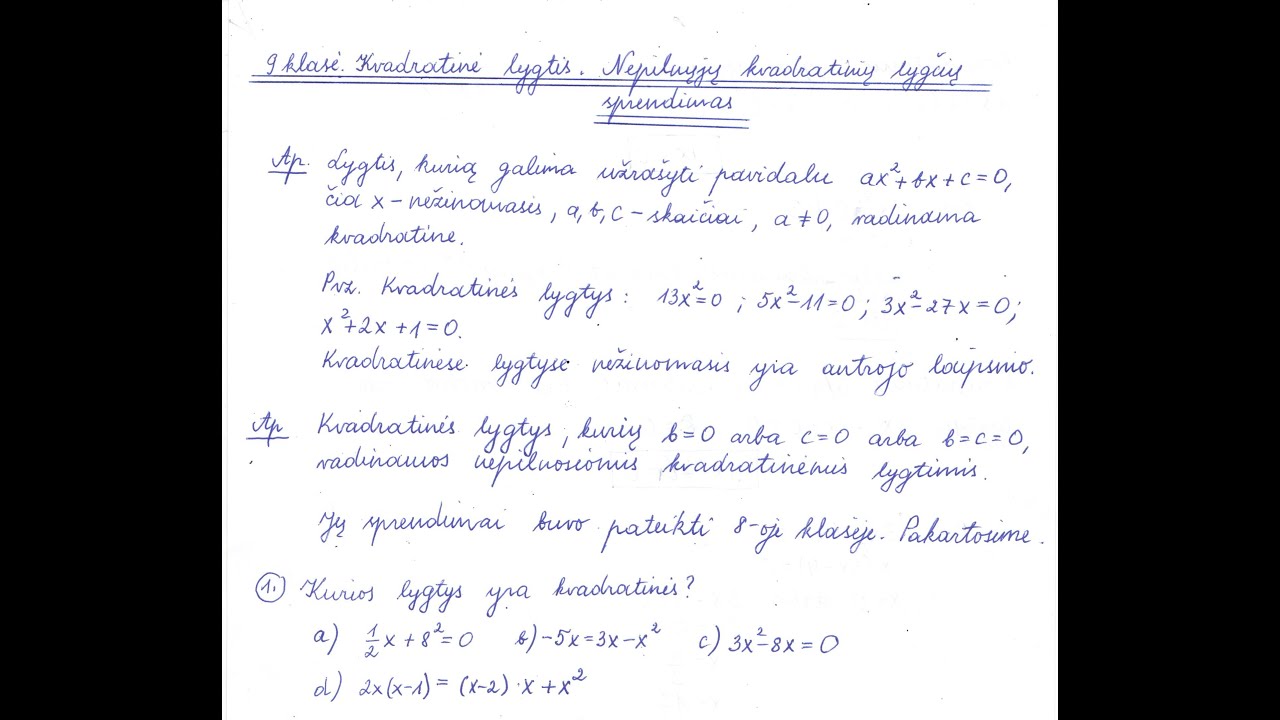 9 klasė. Kvadratinė lygtis. Nepilnųjų kvadratinių lygčių
sprendimas
Ap. Lygtis, kurią galima užrašyti pavidalu ax²+bx+c=0,
čia x – nežinomasis, a, b, c – skaičiai, a ≠ 0, vadinama
kvadratine.
Pvz. Kvadratinės lygtys: 13x²=0 ; 5x²-11=0 ; 3x²-27x=0;
x²+2x+1=0.
Kvadratinėse lygtyse nežinomasis yra antrojo laipsnio.
Ap Kvadratinės lygtys, kurių b=0 arba c=0 arba b=c=0,
vadinamos nepilnosiomis kvadratinėmis lygtimis.
Jų sprendimai buvo pateikti 8-oje klasėje. Pakartosime.
1. Kurios lygtys yra kvadratinės?
a) ½x+8²=0 b) -5x=3x-x² c) 3x²-8x=0
d) 2x(x-1) = (x-2)·x+x²